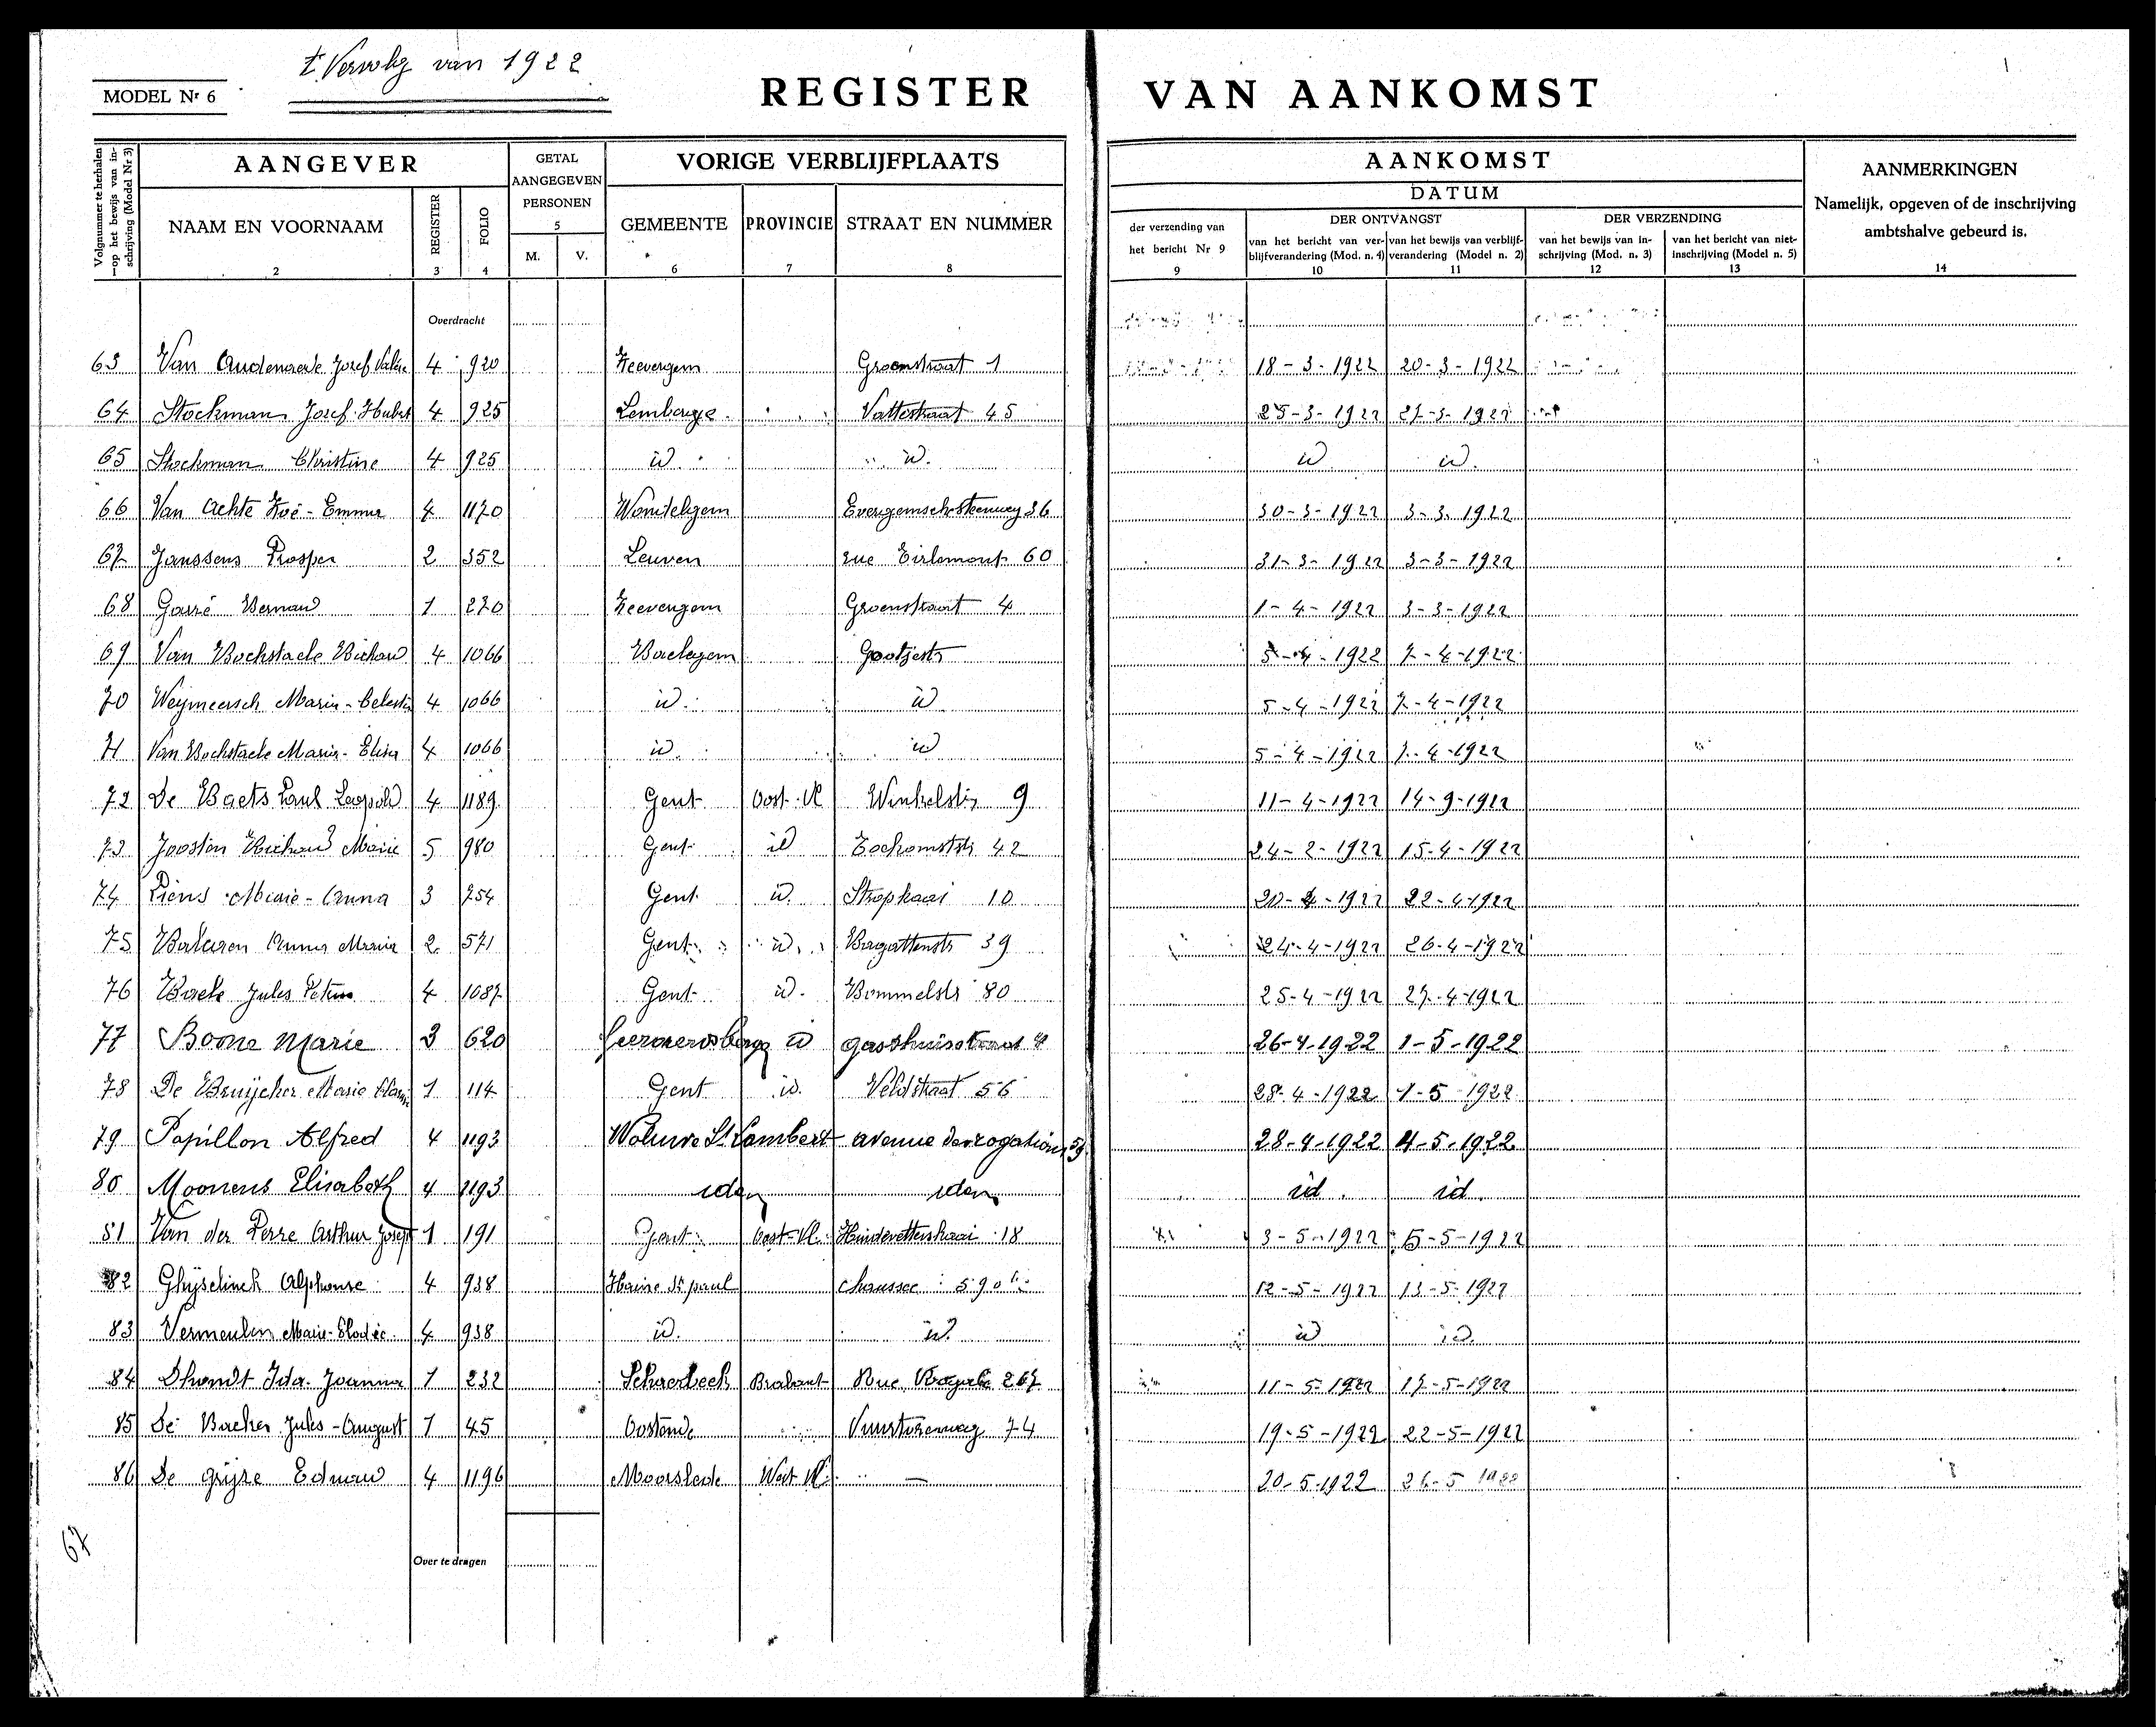 t. Vervolg van 1922
MODEL Nr 6
REGISTER VAN AANKOMST
Volgnummer te herhalen op het bewijs van inschrijving (Model Nr 3)
AANGEVER
GETAL AANGEGEVEN PERSONEN
5
VORIGE VERBLIJFPLAATS
AANKOMST
DATUM
AANMERKINGEN
Namelijk, opgeven of de inschrijving ambtshalve gebeurd is.
NAAM EN VOORNAAM REGISTER FOLIO M. V. GEMEENTE PROVINCIE STRAAT EN NUMMER
der verzending van het bericht Nr 9
DER ONTVANGST
DER VERZENDING
van het bericht van verblijfverandering (Mod. n. 4)
van het bewijs van verblijfverandering (Model n. 2)
van het bewijs van inschrijving (Mod. n. 3)
van het bericht van niet-inschrijving (Model n. 5)
2 3 4 6 7 8 9 10 11 12 13 14
Overdracht
63 Van Oudenaerde Jozef 4 920 Zeevergem Groenstraat 1 18-3-1922 20-3-1922
64 Stockman Jozef 4 925 Lemberge 45 25-3-1922 27-3-1922
65 Stockman Christine 4 925 id id. id id.
66 Van Achte Zoé-Emma 4 1170 Wondelgem Evergemschsteenweg 36 30-3-1922 3-3-1922
67 Janssens Prosper 2 352 Leuven rue Tirlemont 60 31-3-1922 3-3-1922
68 Garré 1 270 Zeevergem Groenstraat 4 1-4-1922 3-3-1922
69 Van Bockstaele Richard 4 1066 Baelegem 5-4-1922 7-4-1922
70 Weymeersch Maria-Celestin 4 1066 id. id 5-4-1922 7-4-1922
71 Van Bockstaele Maria-Elisa 4 1066 id. id 5-4-1922 7-4-1922
72 De Baets Paul Leopold 4 1189 Gent Oost-Vl Winkelstr 9 11-4-1922 14-9-1922
73 Joosten Richard Marie 5 980 Gent id 42 24-2-1922 15-4-1922
74 Piens Marie-Anna 3 754 Gent id. Stropkaai 10 20-4-1922 22-4-1922
75 Anna Maria 2 571 Gent id. Bagattenstr 39 24-4-1922 26-4-1922
76 Baele Jules Petrus 4 1087 Gent id. Bommelstr 80 25-4-1922 27-4-1922
77 Boone Marie 3 620 Geeraerdsberge id gasthuisstraat 26-4-1922 1-5-1922
78 De Bruijcker Marie 1 114 Gent id. Veldstraat 56 28-4-1922 1-5-1922
79 Papillon Alfred 4 1193 Woluwe St Lambert avenue des rogations 59 28-4-1922 4-5-1922
80 Moonens Elisabeth 4 1193 idem idem id. id.
81 Van der Perre Arthur Josef 1 191 Gent Oost-Vl. Huidevetterskaai 18 3-5-1922 5-5-1922
82 Ghyselinck Alphonse 4 938 Haine St paul chaussee 12-5-1922 13-5-1922
83 Vermeulen Marie-Elodie 4 938 id. id. id id.
84 Dhondt Ida Joanna 1 232 Schaerbeek Brabant Rue Royale 267 11-5-1922 17-5-1922
85 De Backer Jules-August 1 45 Oostende Vuurtorenweg 74 19-5-1922 22-5-1922
86 De grijze Eduard 4 1196 Moorslede West Vl. — 20-5-1922 26-5-1922
67
Over te dragen